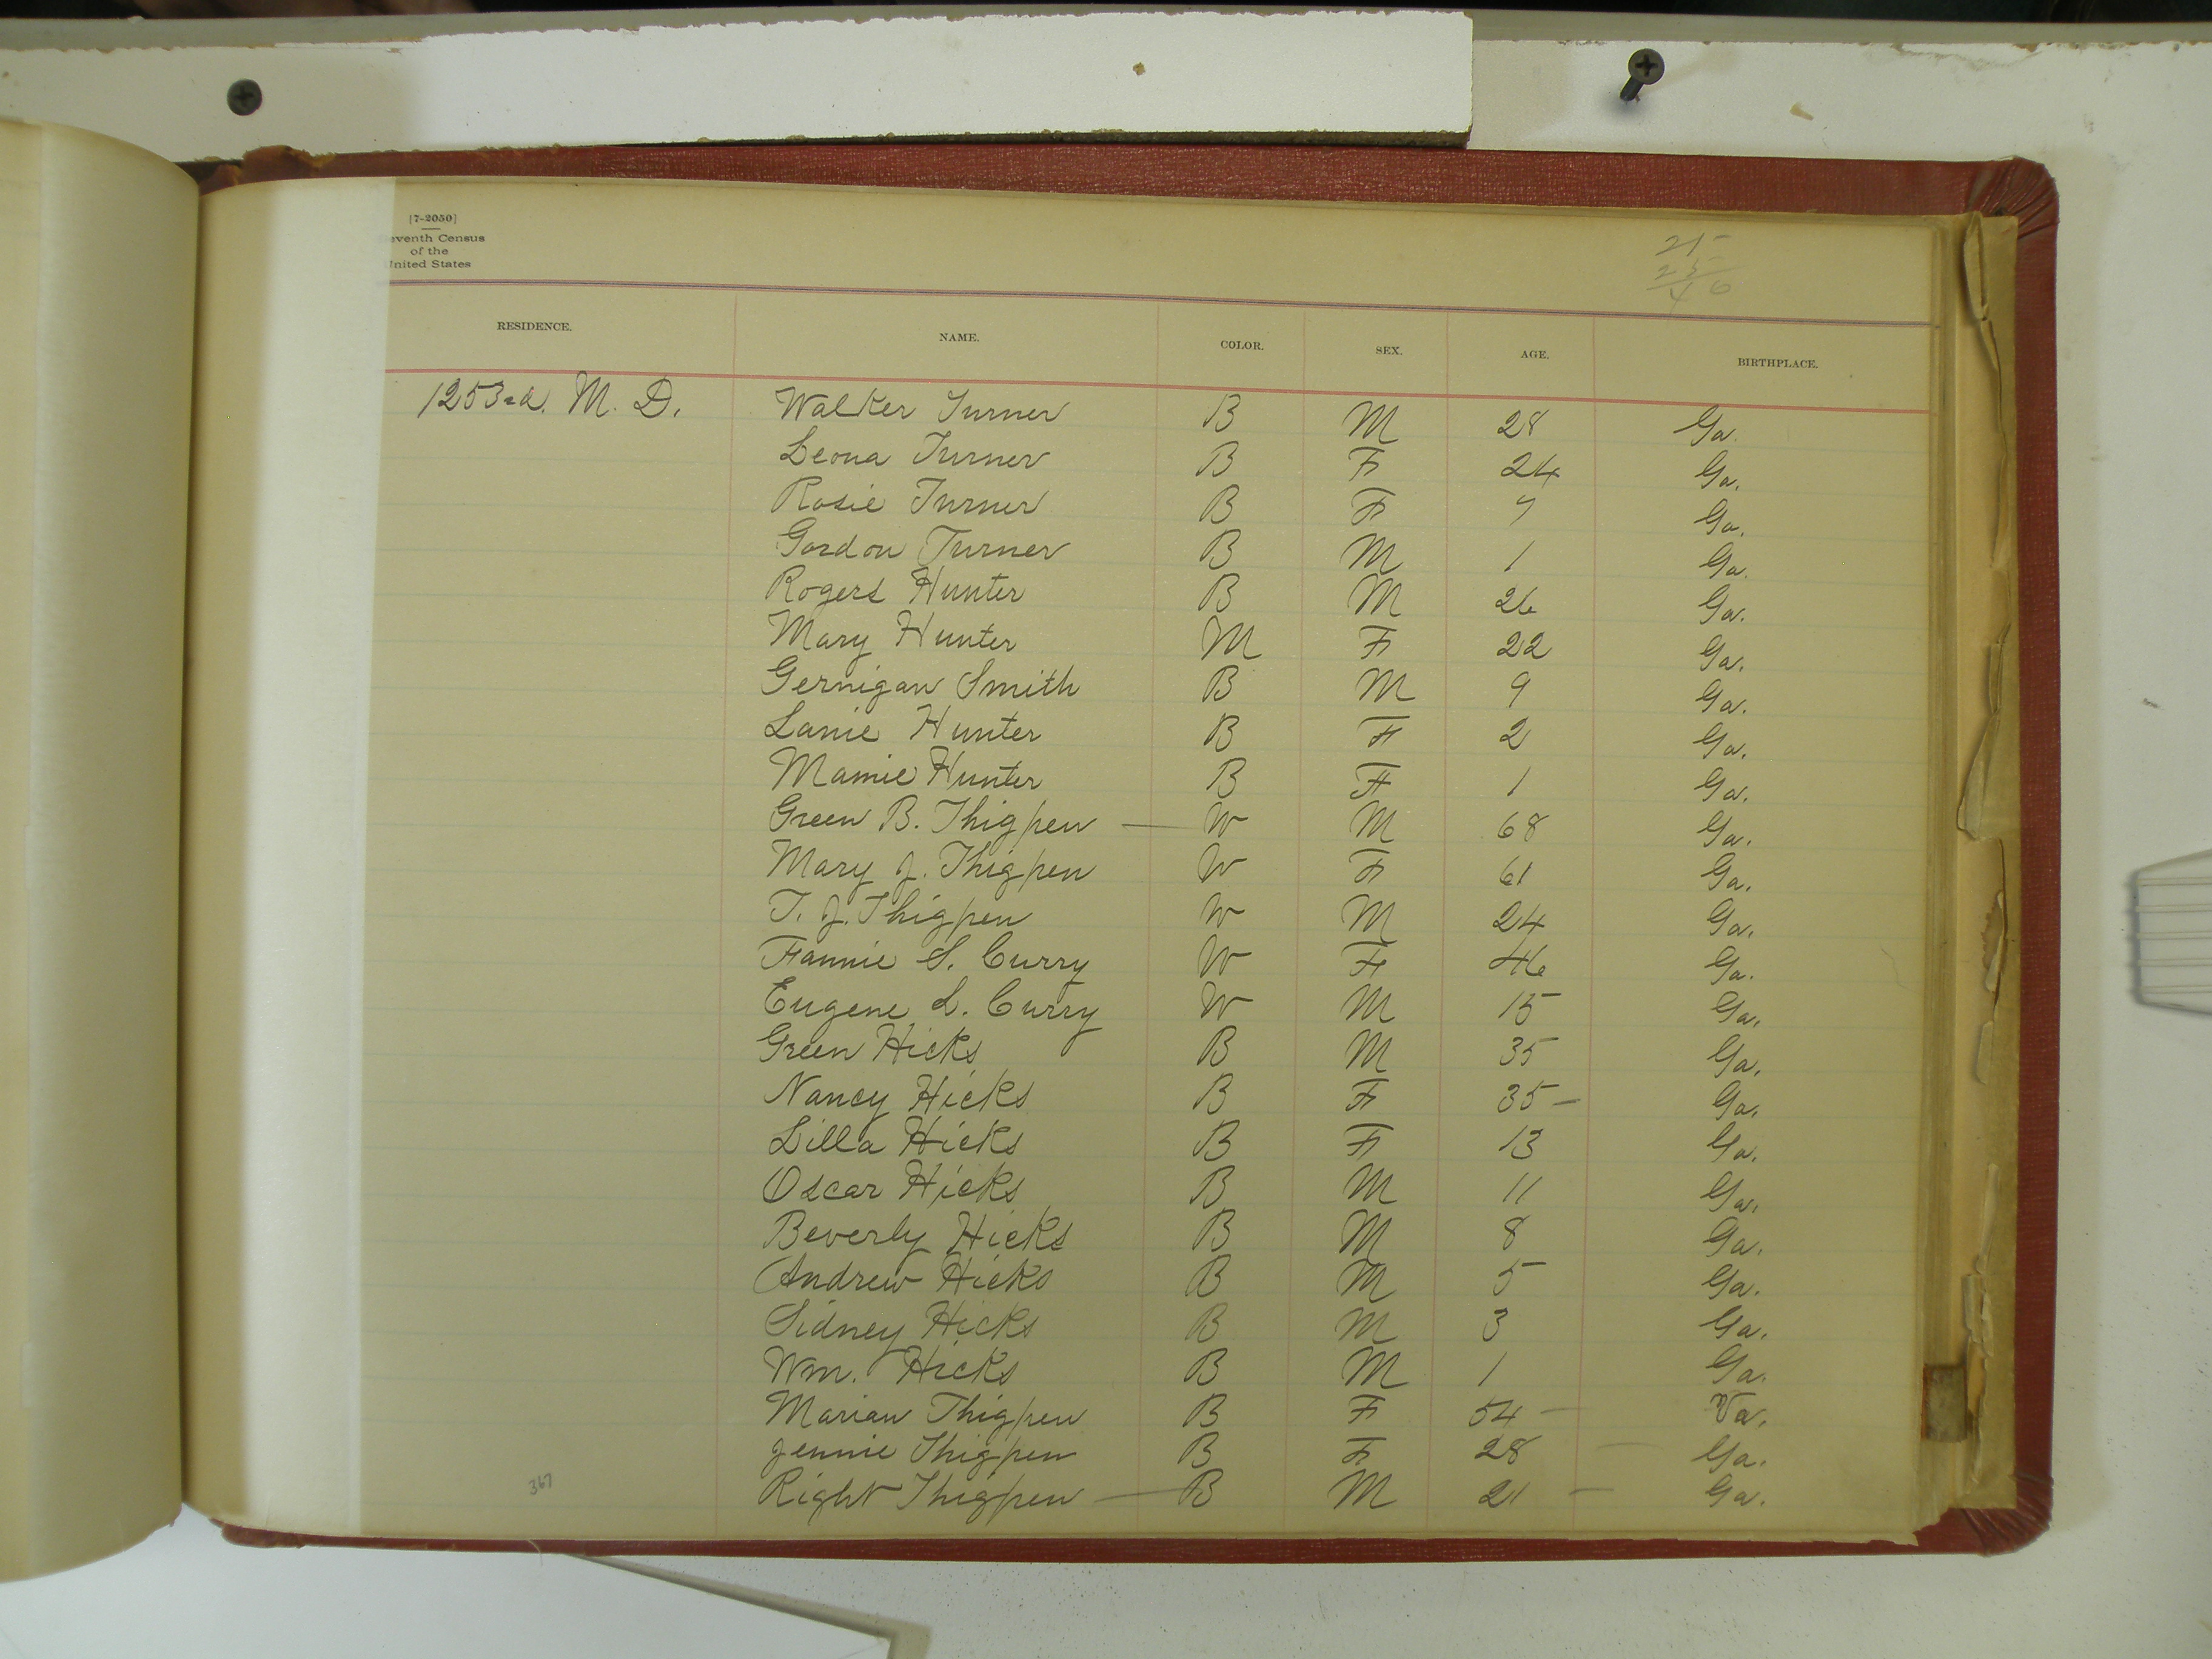 [7-2050]
eventh Census
of the
United States
21-
25
46
RESIDENCE. NAME. COLOR. SEX. AGE. BIRTHPLACE.
1253rd. M. D. Walker Turner B M 28 Ga.
Leona Turner B F 24 Ga.
Rosie Turner B F 7 Ga.
Gordon Turner B M 1 Ga.
Rogers Hunter B M 26 Ga.
Mary Hunter M F 22 Ga.
Gernigan Smith B M 9 Ga.
Lanie Hunter B F 2 Ga.
Mamie Hunter B F 1 Ga.
Green B. Thigpen — W M 68 Ga.
Mary J. Thigpen W F 61 Ga.
T. J. Thigpen W M 24 Ga.
Fannie S. Curry W F 46 Ga.
Eugene L. Curry W M 15 Ga.
Green Hicks B M 35 Ga.
Nancy Hicks B F 35 — Ga.
Lilla Hicks B F 13 Ga.
Oscar Hicks B M 11 Ga.
Beverly Hicks B M 8 Ga.
Andrew Hicks B M 5 Ga.
Sidney Hicks B M 3 Ga.
Wm. Hicks B M 1 Ga.
Marian Thigpen B F 54 — Va.
Jennie Thigpen B F 28 — Ga.
Right Thigpen — B M 21 — Ga.
367